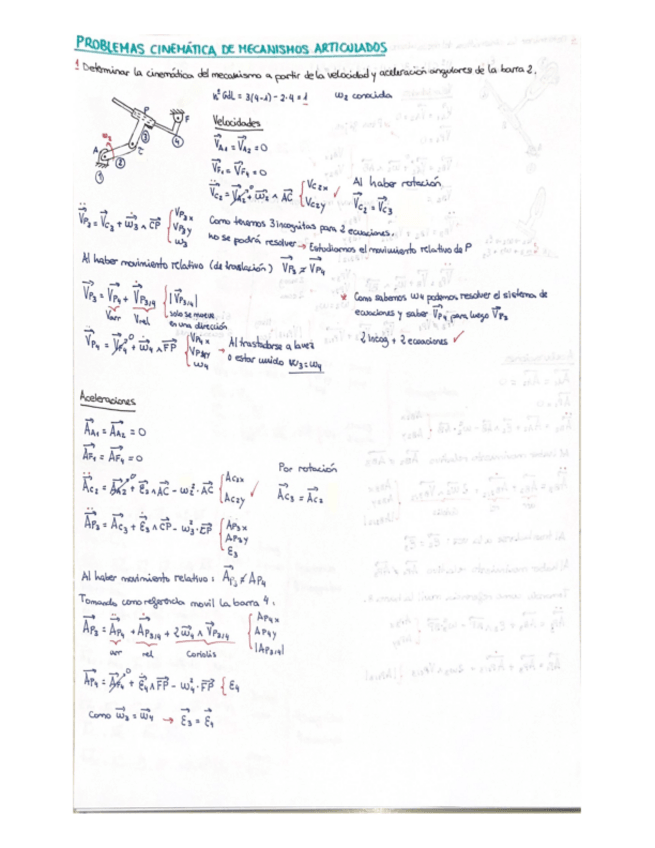 PROBLEMAS CINEMÁTICA DE MECANISMOS ARTICULADOS
1 Determinar la cinemática del mecanismo a partir de la velocidad y aceleración angulares de la barra 2.
nº Gdl = 3(4-1) - 2·4 = 1 ω2 conocida
Velocidades
V⃗A1 = V⃗A2 = 0
V⃗F1 = V⃗F4 = 0
V⃗C2 = V⃗A2 + ω⃗2 ∧ AC⃗ { VC2x VC2y ✓
Al haber rotación
V⃗C2 = V⃗C3
V⃗P3 = V⃗C3 + ω⃗3 ∧ CP⃗ { VP3x VP3y ω3
Como tenemos 3 incognitas para 2 ecuaciones,
no se podrá resolver → Estudiamos el movimiento relativo de P
Al haber movimiento relativo (de traslación) V⃗P3 ≠ V⃗P4
V⃗P3 = V⃗P4 + V⃗P3/4 { |VP3/4|
Varr Vrel
solo se mueve
en una dirección
V⃗P4 = V⃗F4 + ω⃗4 ∧ FP⃗ { VP4x VP4y ω4
→ Al trasladarse a la vez
o estar unido ω3=ω4
* Como sabemos ω4 podemos resolver el sistema de
ecuaciones y saber V⃗P4 para luego V⃗P3
2 incog + 2 ecuaciones ✓
Aceleraciones
A⃗A1 = A⃗A2 = 0
A⃗F1 = A⃗F4 = 0
A⃗C2 = A⃗A2 + ε⃗2 ∧ AC⃗ - ω2² · AC⃗ { AC2x AC2y ✓
Por rotación
A⃗C3 = A⃗C2
A⃗P3 = A⃗C3 + ε⃗3 ∧ CP⃗ - ω3² · CP⃗ { AP3x AP3y ε3
Al haber movimiento relativo: A⃗P3 ≠ AP4
Tomando como referencia movil la barra 4.
A⃗P3 = A⃗P4 + A⃗P3/4 + 2ω⃗4 ∧ V⃗P3/4 { AP4x AP4y |AP3/4|
arr rel Coriolis
A⃗P4 = A⃗F4 + ε⃗4 ∧ FP⃗ - ω4² · FP⃗ { ε4
Como ω⃗3 = ω⃗4 → ε⃗3 = ε⃗4
A
P
C
F
ω2
1
2
3
4